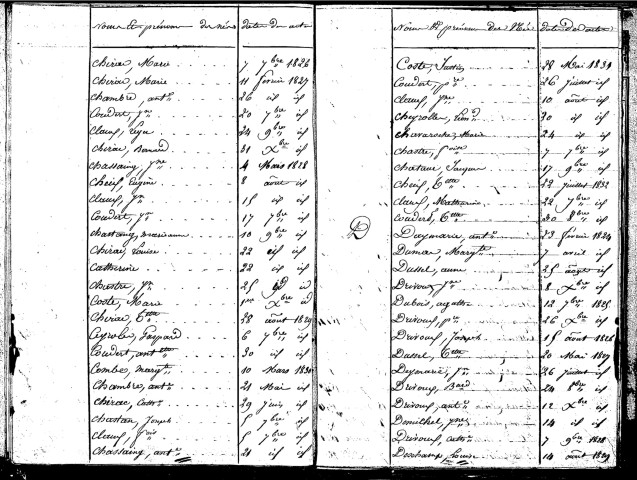 Noms et prénoms des nés date des actes
Chirac, Marie 7 7bre 1826
Chirac, Marie 11 février 1827
Chambre, antne 26 id id
Coudert, Jne 20 7bre id
Claux, 24 9bre id
Chirac, Bernard 31 Xbre id
Chassaing, Jne 4 Mars 1828
Cheix, Eugène 8 août id
Claux, Jn 15 id id
Coudert, Jn 17 7bre id
Chastaing, Marianne 10 9bre id
Chirac, Louise 22 id id
Catherine 22 id id
Chastre, Jn 25 id
Coste, Marie 1er Xbre id
Chirac, Ctte 28 août 1829
Ceyrolle, Gaspard 6 7bre id
Coudert, anttte 30 id id
Combe, Margte 10 Mars 1830
Chambre, antne 21 Mai id
Chirac, Cathe 29 Juin id
Chastan, Joseph 5 7bre id
Claux, Fois 5 7bre id
Chassaing, antne 21 id id
Noms et prénoms des Nés date des actes
Coste, Justin 28 Mai 1831
Coudert, Jne 26 juillet id
Claux, Jne 10 août id
Cheyrolle, Leond 30 id id
Chavaroche, Marie 24 id id
Chastre, 7 7bre id
Chatane, Jacques 17 9bre id
Cheix, Ctte 22 juillet 1832
Claux, Catherine 22 7bre id
Coudert, Ctte 20 8bre id
D Daymarie, antne 23 février 1824
Dumas, Margte avril id
Dussel, anne 25 août id
Drivoux, Jne 8 Xbre id
Dubois, agathe 12 7bre 1825
Drivoux, Jne 26 Xbre id
Drivoux, Joseph 15 août 1826
Dussel, Ctte 20 Mai 1827
Daymarie, Jn 26 juillet id
Drivoux, Bard 24 8bre id
Drivoux, antne 12 Xbre id
Demichel, Jne 14 id id
Drivoux, cathe 7 9bre 1828
Deschamps, Louise 14 août 1829